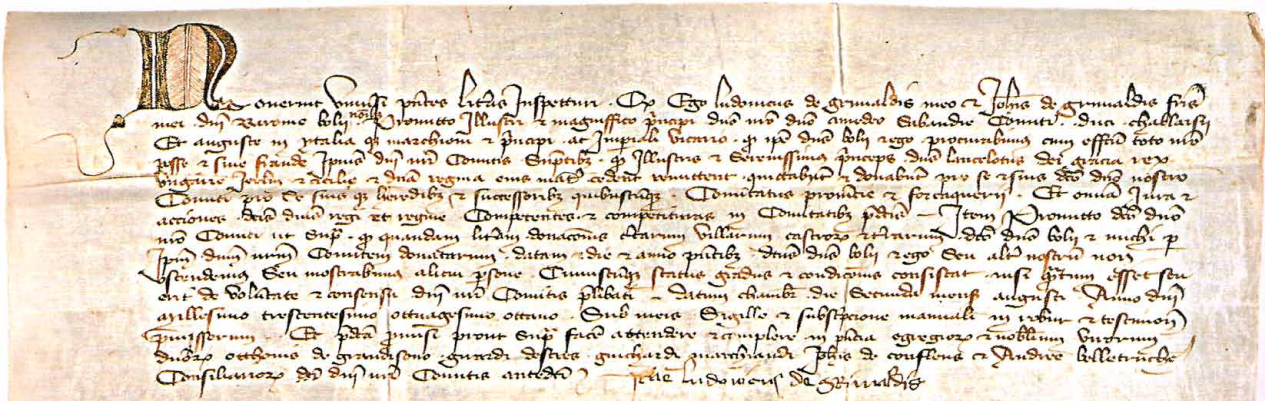 Noverint universi pñtes litas inspecturi . Ego ludovicus de grimaldis meo et Johis de grimaldis fris
mei . dni Bareme bolii noie promitto Illustri et magniffico principi dno meo dno amedeo Sabaudie Comiti . duci . chablaisii
Et auguste in ytalia qz marchioni et principi . ac Imperiali vicario . qz ipse dnus bolii et ego procurabimus cum effectu toto nro
posse et sine fraude Ipsius dni nri Comitis . qz Illustris et Serenissimus princeps dnus lancelotus dei gracia rex
Ungarie Jerlm et Sicilie et dna regina eius mater cedent remittent . quictabunt et donabunt pro se et suis dco dno nostro
Comiti pro se suis qz heredibz et successoribz quibuscumqz . Comitatus provincie et forcaquerii . Et omnia Jura et
acciones . dcis dnis regi et regine Competentes et competituras in Comitatibz pdcis — Item Promitto dco dno
nro Comiti ut Supra . qz quandam litam donacionis certarum villarum castrorz et trarum . dco dno bolii et michi p
Ipsum dnum nrum Comitem donatarum . datam et die et anno pñtibz . dcus dnus bolii et ego Seu alter nostrum non
ostendemus Seu mostrabimus alicui persone Cuiuscumqz status gradus et condicionis consistat . nisi qztum esset seu
erit de voluntate et consensu dni nri Comitis plibati — datum chambz . die Secunda mensis augusti . Anno dni
millesimo trescentesimo octuagesimo octavo . Sub meis Sigillo et subscripcione manuali in robur et testimonium
pmissorum . Et pdca promisi prout Supra facere attendere et complere in pñcia egregiorz et nobilium virorum
dnorz otthonis de grandissono girardi destres . guichardi marchiandi Johis de conflens et Andree belletruche
Consiliariorz dci dni nri Comitis antedci Ita est ludovicus de grimaldis